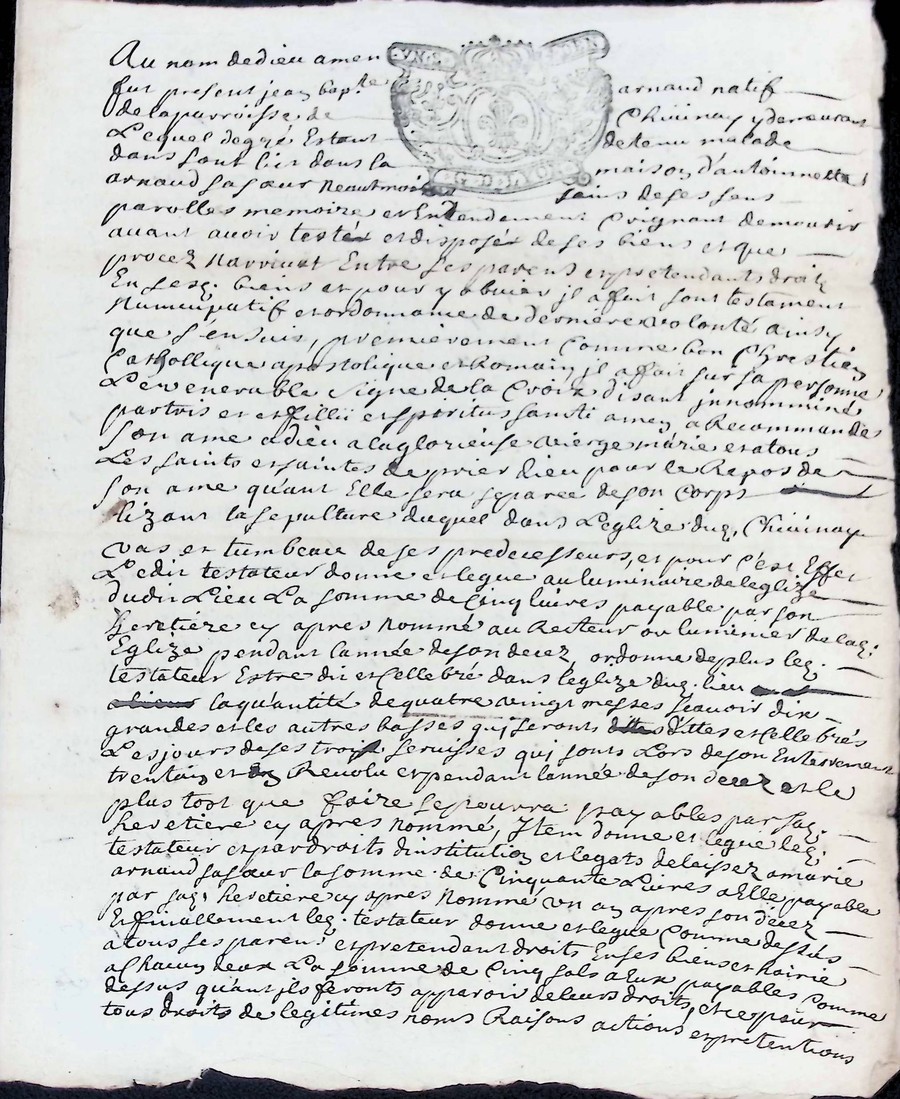 Au nom de dieu amen
fut present jean bap.te arnaud natif
de la parroisse de Chivinay y demeurant
Lequel de gré Estant detenu malade
dans sont lict dans la maison d'antoinnette
arnaud sa sœur neantmoins sains de ses sens
parolles memoire et Entendement Craignant de mourir
avant avoir testér et disposér de ses biens et que
procez narrivat Entre ses parens et pretendants droit
En sesq. biens et pour y obvier jl a fait sont testament
Numcupatif et ordonnanse de derniere volonté ainsy
que s'ensuis, premierement Comme bon Chrestien
Catholligue apostoligue et Romain jl a fait sur sa personne
Le venerable signe de la Croix disant jnnomminé
partris et et fillii et spiritus santi amen, a Recommandé
son ame a dieu a la glorieuse vierge marie et a tous
Les saints et saintes de prier dieu pour le Repos de
son ame qu'ant Elle sera separée de son Corps
lizant la sepulture duquel dans L'eglize dug. Chivinay
vas et tumbeau de ses predecesseurs, et pour C'est Effet
Ledit testateur donne et legue au luminaire de leglize
dudit Lieu La somme de Cinq livres payable par son
heretiere cy apres nommé au Recteur ou luminier de lag.
Eglize pendant l'année de son decez, ordonne de plus leg.
testateur Estre dit et Cellebré dans leglize dug. lieu
la quantité de quatre vingt messes scavoir dix
grandes et les autres basses quj seront dittes et Cellebrés
Les jours de ses trois servisses quj sonts Lors de son Enterrement
trentain et Revolu et pendant l'année de son decez et le
plus toot que faire se pourra payables par sag.
heretiere cy apres nommé, Jtem donne et legue leg.
testateur et par droits d'institution et legats delaissez a marie
arnaud sa sœur la somme de Cinquante Livres a Elle payable
par sag. heretiere cy apres nommé un an apres son decez
Et finallement leg. testateur donne et legue Comme dessus
a tous ses paren. et pretendant droits En ses biens et hoirie
a Chacun deux La somme de Cinq sols a Eux payables Comme
dessus qu'ant jls feronts apparoir de leurs droits, et ce pour
tous droits de legitimes noms Raisons actions et pretentions
G. D. LYON